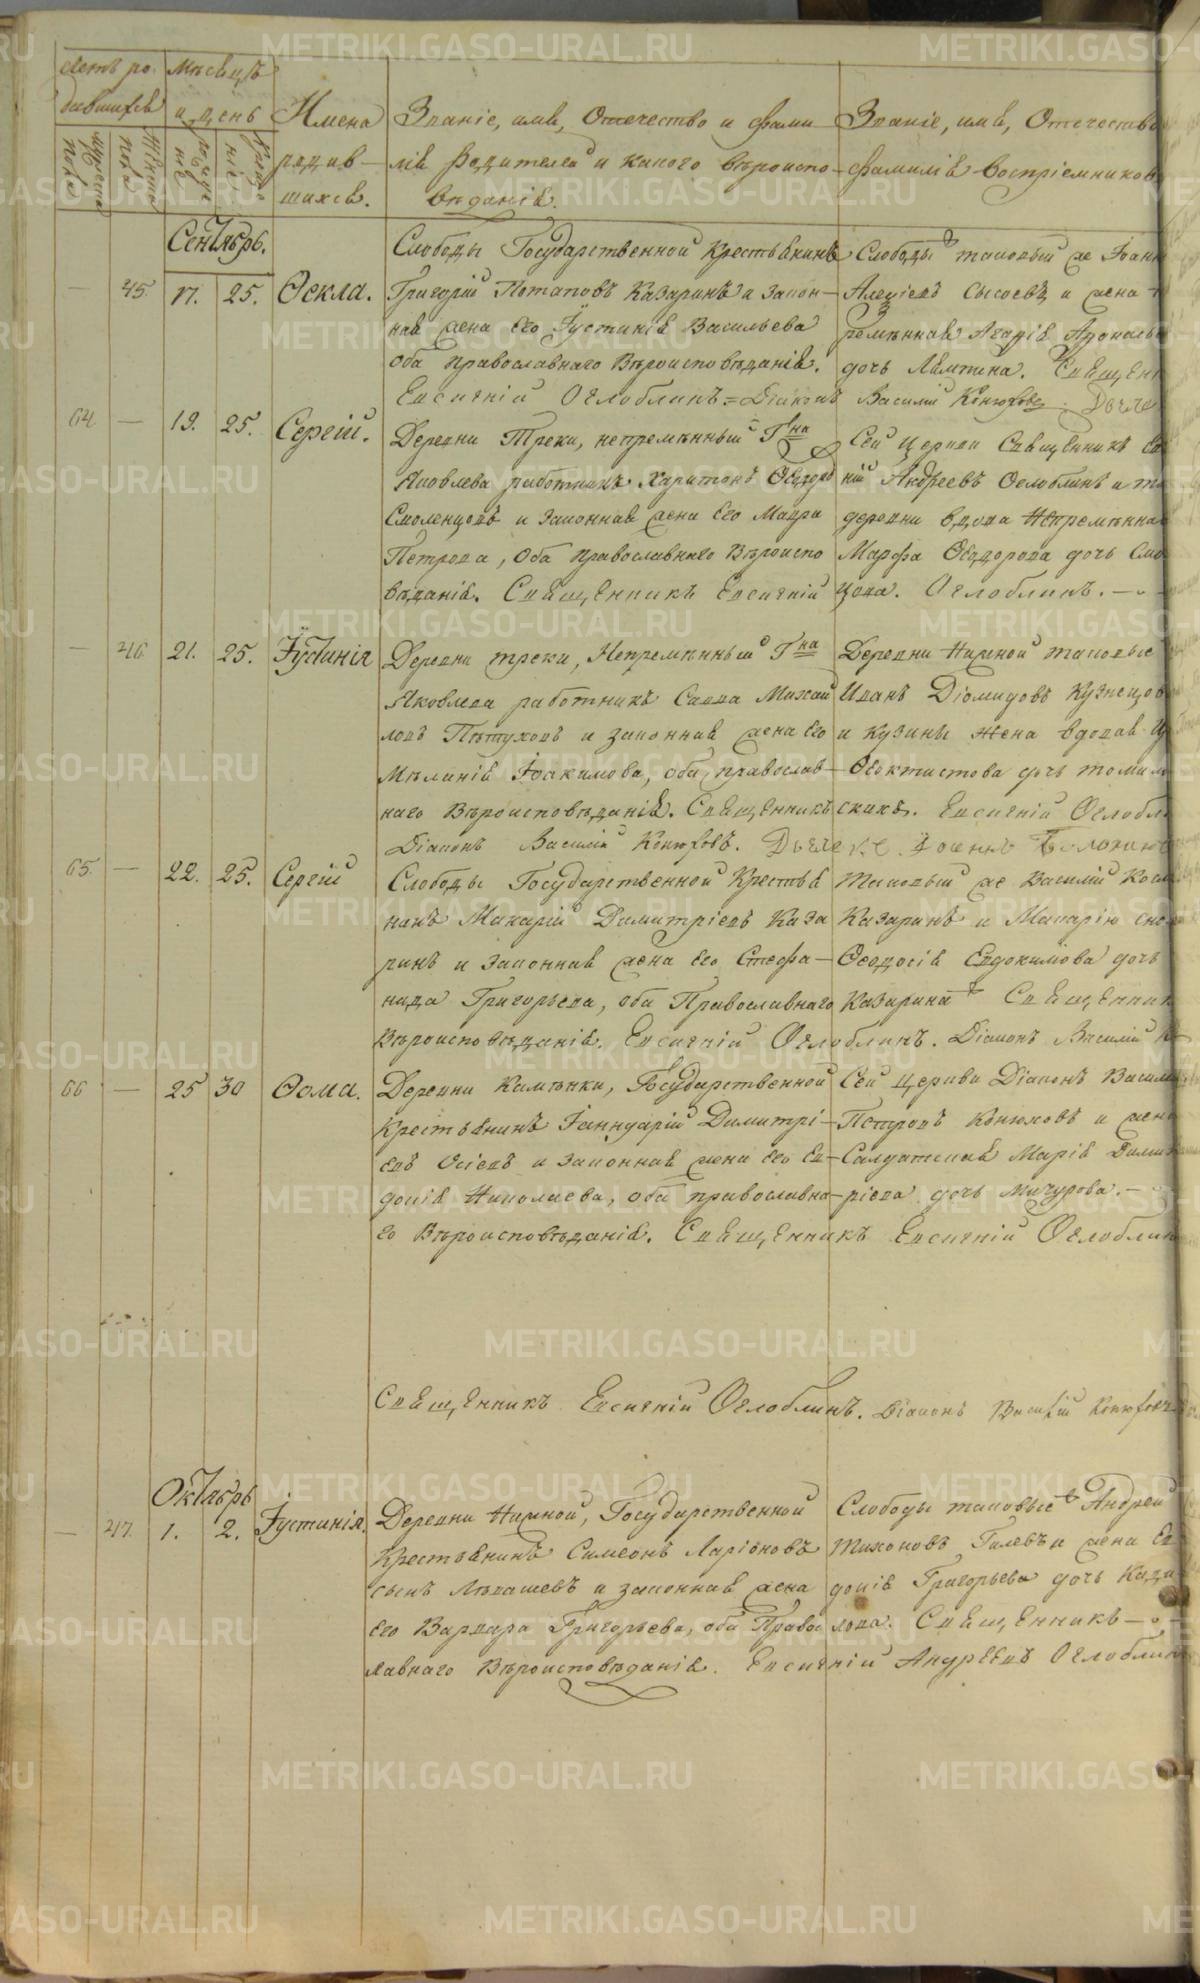 METRIKI.GASO-URAL.RU
Счетъ ро-
дившихся
Мѣсяцъ
и день
Имена
родив-
шихся.
Званіе, имя, Отчество и фами-
лія Родителей и какого вѣроиспо-
вѣданія.
Званіе, имя, Отчество
фамилія воспріемниковъ
Сентябрь.
— 45. 17. 25. Ѳекла.
Слободы Государственной Крестьянинъ
Григорій Потаповъ Казаринъ и закон-
ная жена его Іустинія Васильева
оба православнаго Вѣроисповѣданія.
Слободы таковый же Іоанн
Алексіевъ Сысоевъ и жена
Агафія
дочь Свящ,енн
Евсигній Оглоблинъ = Діаконъ Василій Конюховъ.
64 — 19. 25. Сергій.
Деревни Треки, непремѣнный Гна
Яковлева работникъ Харитонъ Ѳедоро
Смоленцовъ и Законная жена его Мавра
Петрова, оба православнаго Вѣроиспо
вѣданія. Свящ,енникъ Евсигній
Сей Церкви Свящ,енникъ Ев
ній Андреевъ Оглоблинъ и та
деревни вдова Непремѣнная
Марфа Ѳедорова дочь Смо
цова. Оглоблинъ. —
— 46. 21. 25. Іустинія
Деревни треки, Непремѣнный Гна
Яковлева работникъ Савва Михай
ловъ Пѣтуховъ и законная жена его
Мѣланія Іоакимова, оба православ-
наго Вѣроисповѣданія. Свящ,енникъ
Діаконъ Василій Конюховъ.
Деревни Нижной таковые
Иванъ Діомидовъ Кузнецов
и Кузины жена вдовая
Ѳеоктистова дочь томил
скихъ. Евсигній Оглобл
65. — 22. 25. Сергій
Слободы Государственной Крестья
нинъ Макарій Димитріевъ Каза
ринъ и Законная жена его Стефа-
нида Григорьева, оба Православнаго
Вѣроисповѣданія. Евсигній Оглоблинъ. Діаконъ Василій К
Таковый же Василій Козм
Казаринъ и Макарію сно
Ѳеодосія Евдокимова дочь
Казарина Свящ,енник
66 — 25 30 Ѳома.
Деревни Камѣнки, Государственной
Крестьянинъ Іаннуарій Димитрі-
евъ Осіевъ и Законная жена его Ев-
докія Николаева, оба православна-
го Вѣроисповѣданія. Свящ,енникъ Евсигній Оглоблин
Сей Церкви Діаконъ Васили
Петровъ Конюховъ и жена
Салдатская Марія Димит
ріева дочь Мичурова. —
Свящ,енникъ Евсигній Оглоблинъ. Діаконъ Василій Конюховъ
Октябрь
— 47. 1. 2. Іустинія.
Деревни Нижной, Государственной
Крестьянинъ Симеонъ Ларіоновъ
сынъ Лѣвашевъ и законная жена
его Варвара Григорьева, оба Правос
лавнаго Вѣроисповѣданія. Евсигній Андреевъ Оглоблин
Слободы таковые Андрей
Тихоновъ Гилевъ и жена Ев
докія Григорьева дочь Кади
лова. Свящ,енникъ —